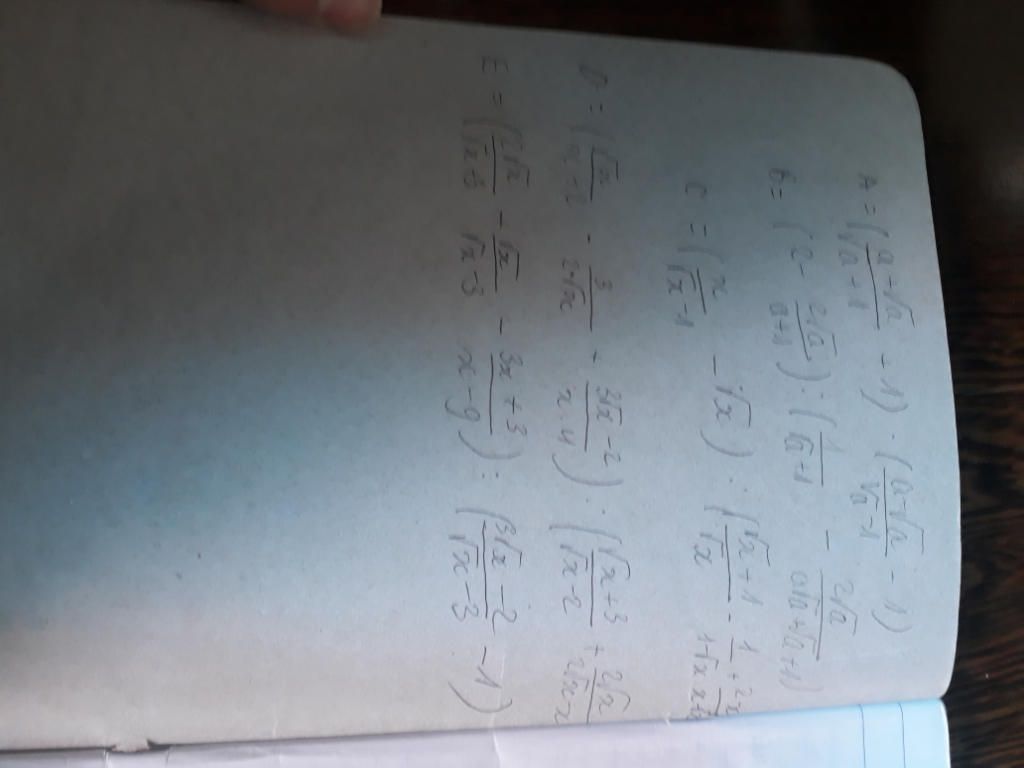 A = ( (a + √a)/(√a + 1) + 1) · ( (a - √a)/(√a - 1) - 1)
B = ( 2 - (2√a)/(a+1) ) : ( 1/(√a + 1) - (2√a)/(a√a + √a + a + 1) )
C = ( x/(√x - 1) - √x ) : ( (√x + 1)/√x - 1/(1-√x)
D = ( √x/ - 3/(2+√x) + (3√x - 2)/(x - 4) ) : ( (√x + 3)/(√x - 2) + 2√x/(2√x - x)
E = ( 2√x/(√x + 3) - √x/(√x - 3) - (3x + 3)/(x - 9) ) : ( (3√x - 2)/(√x - 3) - 1)